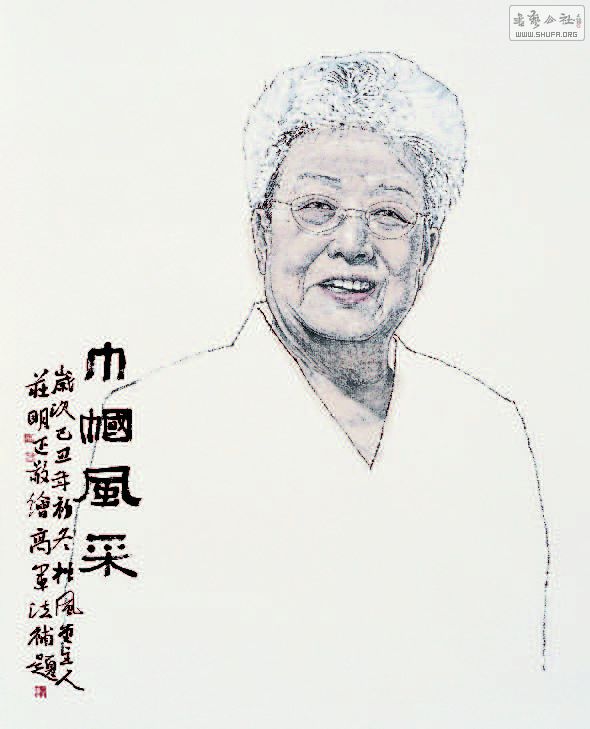 书艺公社
WWW.SHUFA.ORG
巾帼風采
歲次己丑年初冬松風堂主人
莊明正敬繪高軍法補題